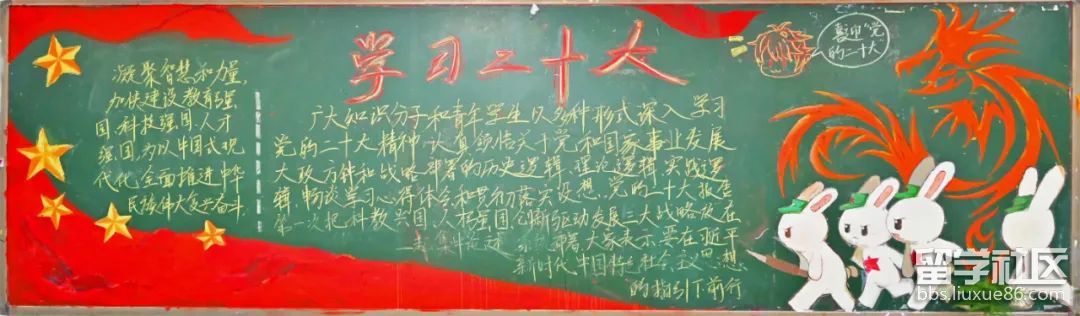 学习二十大
凝聚智慧和力量,
加快建设教育强
国,科技强国,人才
强国,为以中国式现
代化全面推进中华
民族伟大复兴奋斗.
广大知识分子和青年学生以多种形式深入学习
党的二十大精神,认真领悟关于党和国家事业发展
大政方针和战略部署的历史逻辑、理论逻辑、实践逻
辑,畅谈学习心得体会和贯彻落实设想.党的二十大报告
第一次把科教兴国、人才强国、创新驱动发展三大战略放在
一起集中论述 部署大家表示要在习近平
新时代中国特色社会主义思想
的指引下前行
喜迎"党
的二十大
留学社区
bbs.liuxue86.com